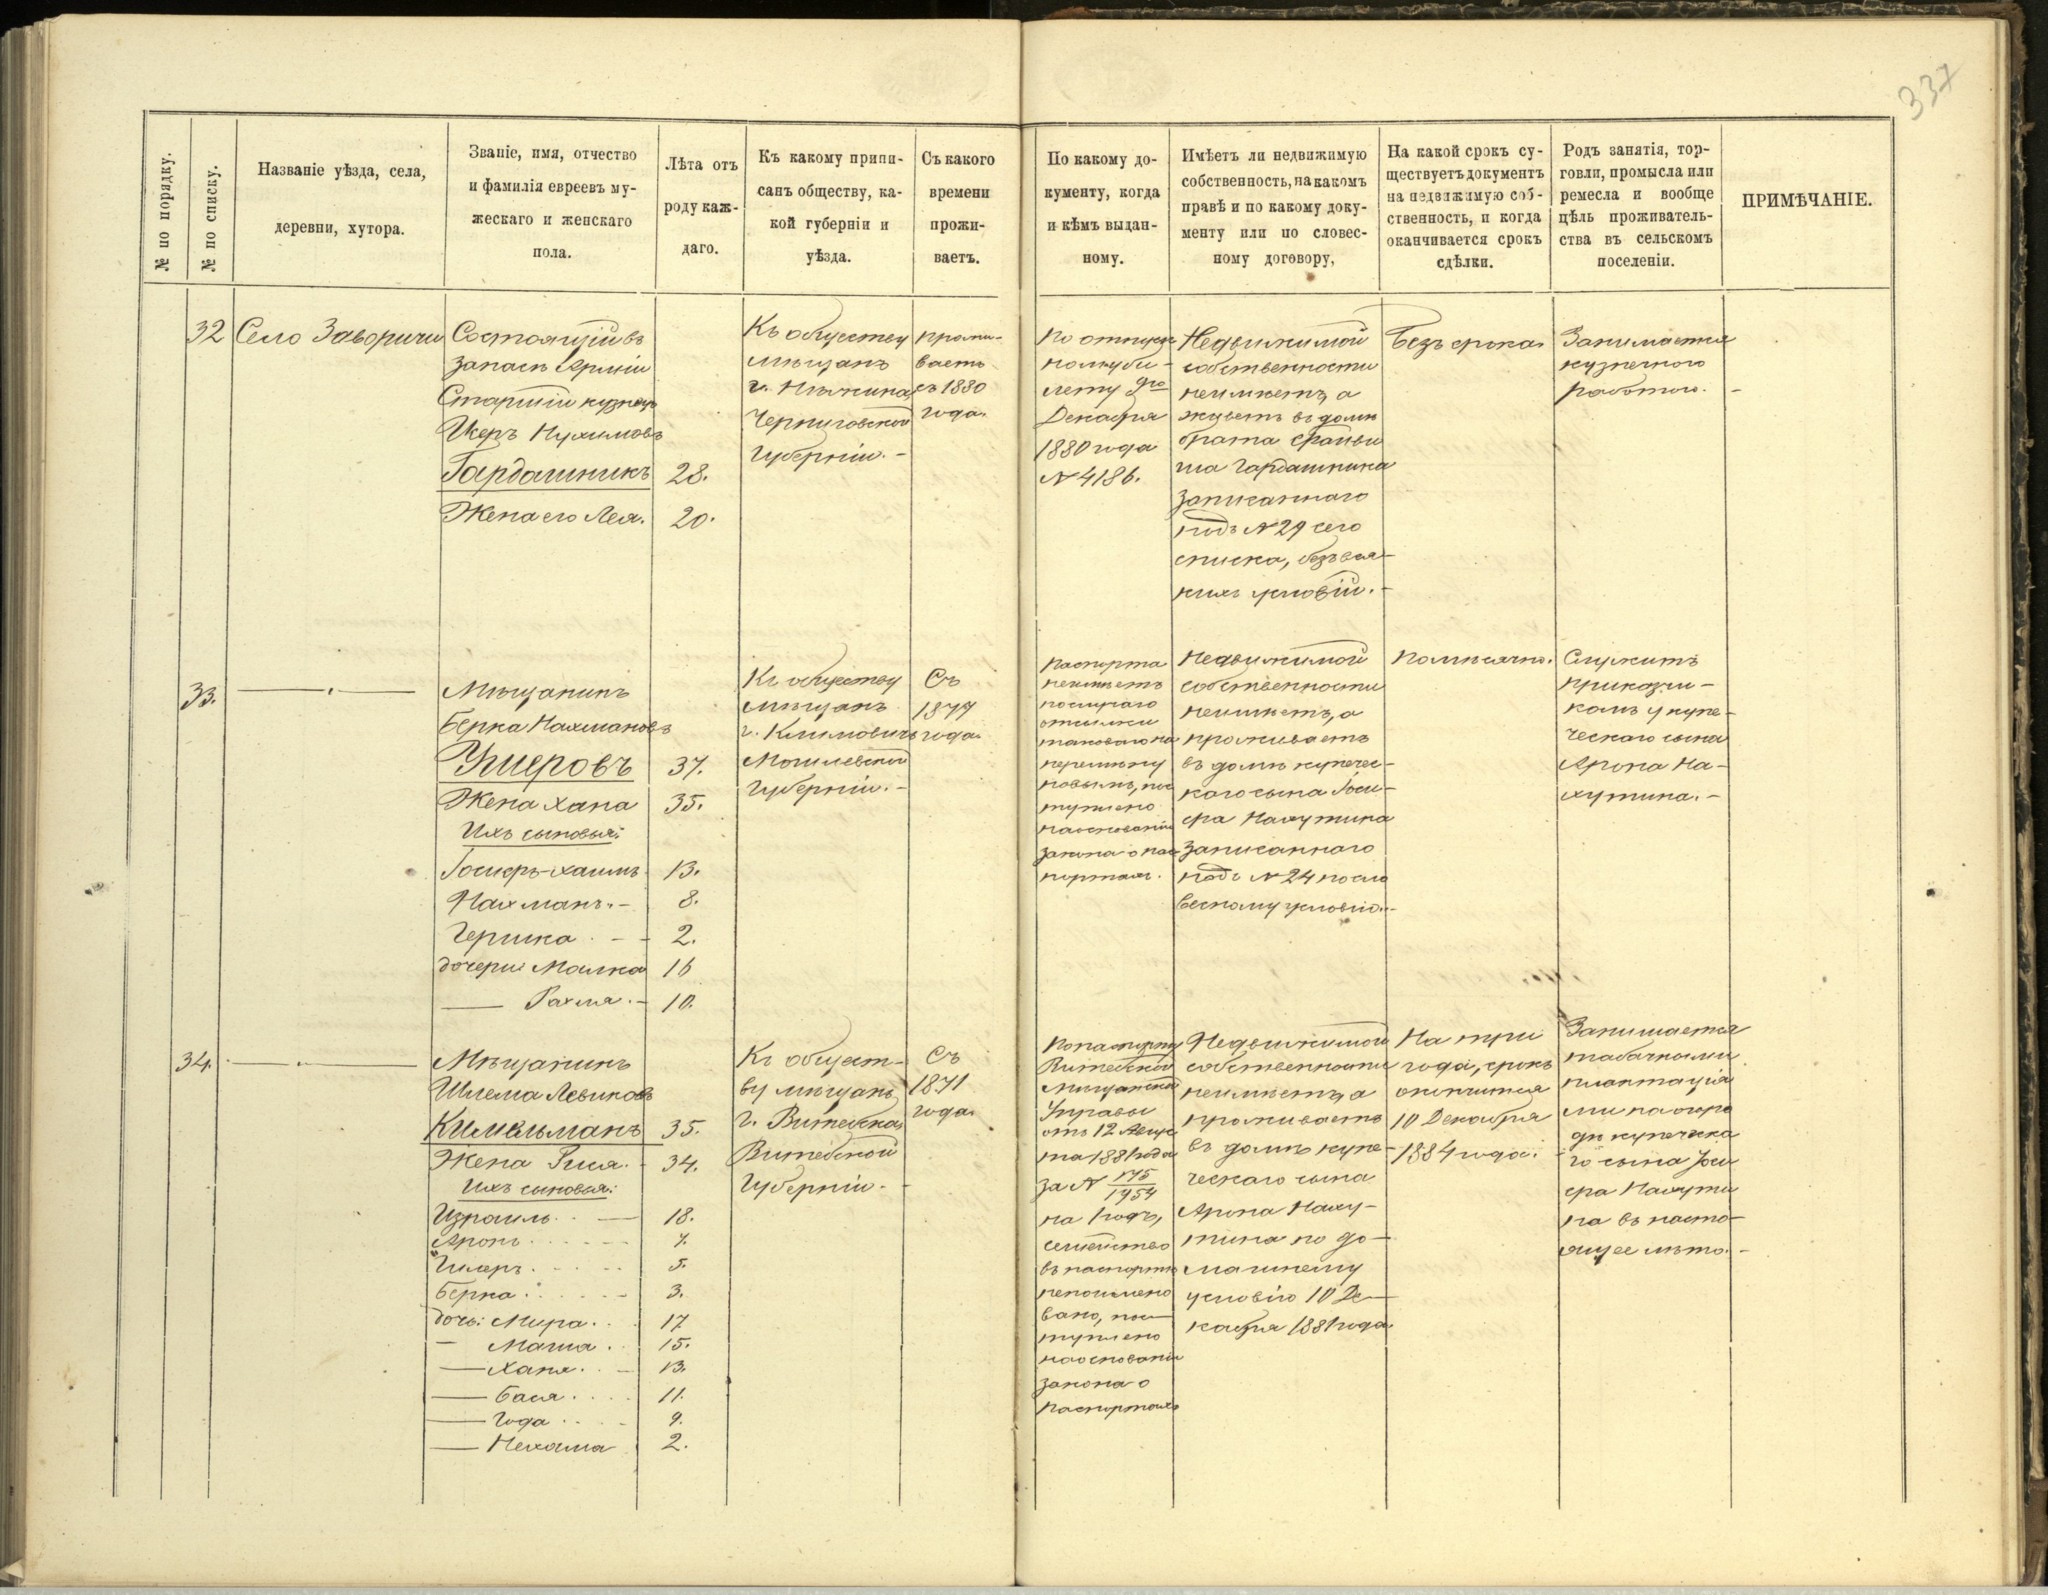 337
№ по порядку.
№ по списку.
Названіе уѣзда, села,
деревни, хутора.
Званіе, имя, отчество
и фамилія евреевъ му-
жескаго и женскаго
пола.
Лѣта отъ
роду каж-
даго.
Къ какому припи-
санъ обществу, ка-
кой губерніи и
уѣзда.
Съ какого
времени
прожи-
ваетъ.
По какому до-
кументу, когда
и кѣмъ выдан-
ному.
Имѣетъ ли недвижимую
собственность, на какомъ
правѣ и по какому доку-
менту или по словес-
ному договору,
На какой срокъ су-
ществуетъ документъ
на недвижимую соб-
ственность, и когда
оканчивается срокъ
сдѣлки.
Родъ занятія, тор-
говли, промысла или
ремесла и вообще
цѣль проживатель-
ства въ сельскомъ
поселеніи.
ПРИМѢЧАНІЕ.
32
Село Заворичи
Состоящій въ
запасѣ Арміи
Старшій кузнецъ
Нухимовъ
Гардашникъ 28.
Жена его Лея. 20.
Къ обществу
мѣщанъ
г. Нѣжина
Черниговской
Губерніи. -
прожи-
ваетъ
съ 1880
года.
По отпускн
билету 9го
Декабря
1880 года
№ 4186.
Недвижимой
собственности
неимѣетъ, а
живетъ въ домѣ
брата
Гардашника
записаннаго
подъ № 29 сего
списка, безъ вся-
кихъ условій. -
Безъ срока.
Занимается
кузнечною
работою. -
33.
Мѣщанинъ
Берка Нахмановъ
37.
Жена Хана 35.
Ихъ сыновья:
Іосифъ-Хаимъ 13.
Нахманъ. - 8.
Гершка . - - 2.
дочери: Малка 16
— . - 10.
Къ обществу
мѣщанъ
г. Климовичъ
Могилевской
Губерніи. -
Съ
1877
года.
Паспорта
неимѣетъ
отсылки
таковаго на
перемѣну
новымъ, пос
туплено
на основаніи
закона о пас
портахъ.
Недвижимой
собственности
неимѣетъ, а
проживаетъ
въ домѣ купечес-
каго сына Іоси-
фа Нахутина
записаннаго
подъ № 24 по сло
весному условію. -
Помѣсячно.
Служитъ
приказчи-
комъ у купе-
ческаго сына
Арона На-
хутина. -
34.
Мѣщанинъ
Шлема Левиковъ
35.
Жена . - 34.
Ихъ сыновья:
Израиль . . — 18.
Аронъ . . . . - - 7.
5.
Берка . . . . . - 3.
дочь: Мира . . . 17
— Маша . . 15.
— Ханя . . - 13.
— Бася . . . . 11.
— Года . . . - 9.
— Нехама 2.
Къ общест-
ву мѣщанъ
г. Витебска
Витебской
Губерніи. -
Съ
1871
года.
По паспорту
Витебской
Мѣщанской
Управы
отъ 12 Авгус
та 1881 года
за № 175/1954
на 1 годъ,
семейство
въ паспортѣ
непоимено
вано, пос-
туплено
на основаніи
закона о
паспортахъ
Недвижимой
собственности
неимѣетъ, а
проживаетъ
въ домѣ купе-
ческаго сына
Арона Наху-
тина по до-
машнему
условію 10 Де-
кабря 1881 года.
На три
года, срокъ
окончится
10 Декабря
1884 года.
Занимается
табачными
плантація
ми на огоро
дѣ купечска
го сына Іоси
фа Нахути
на въ насто-
ящее лѣто. -